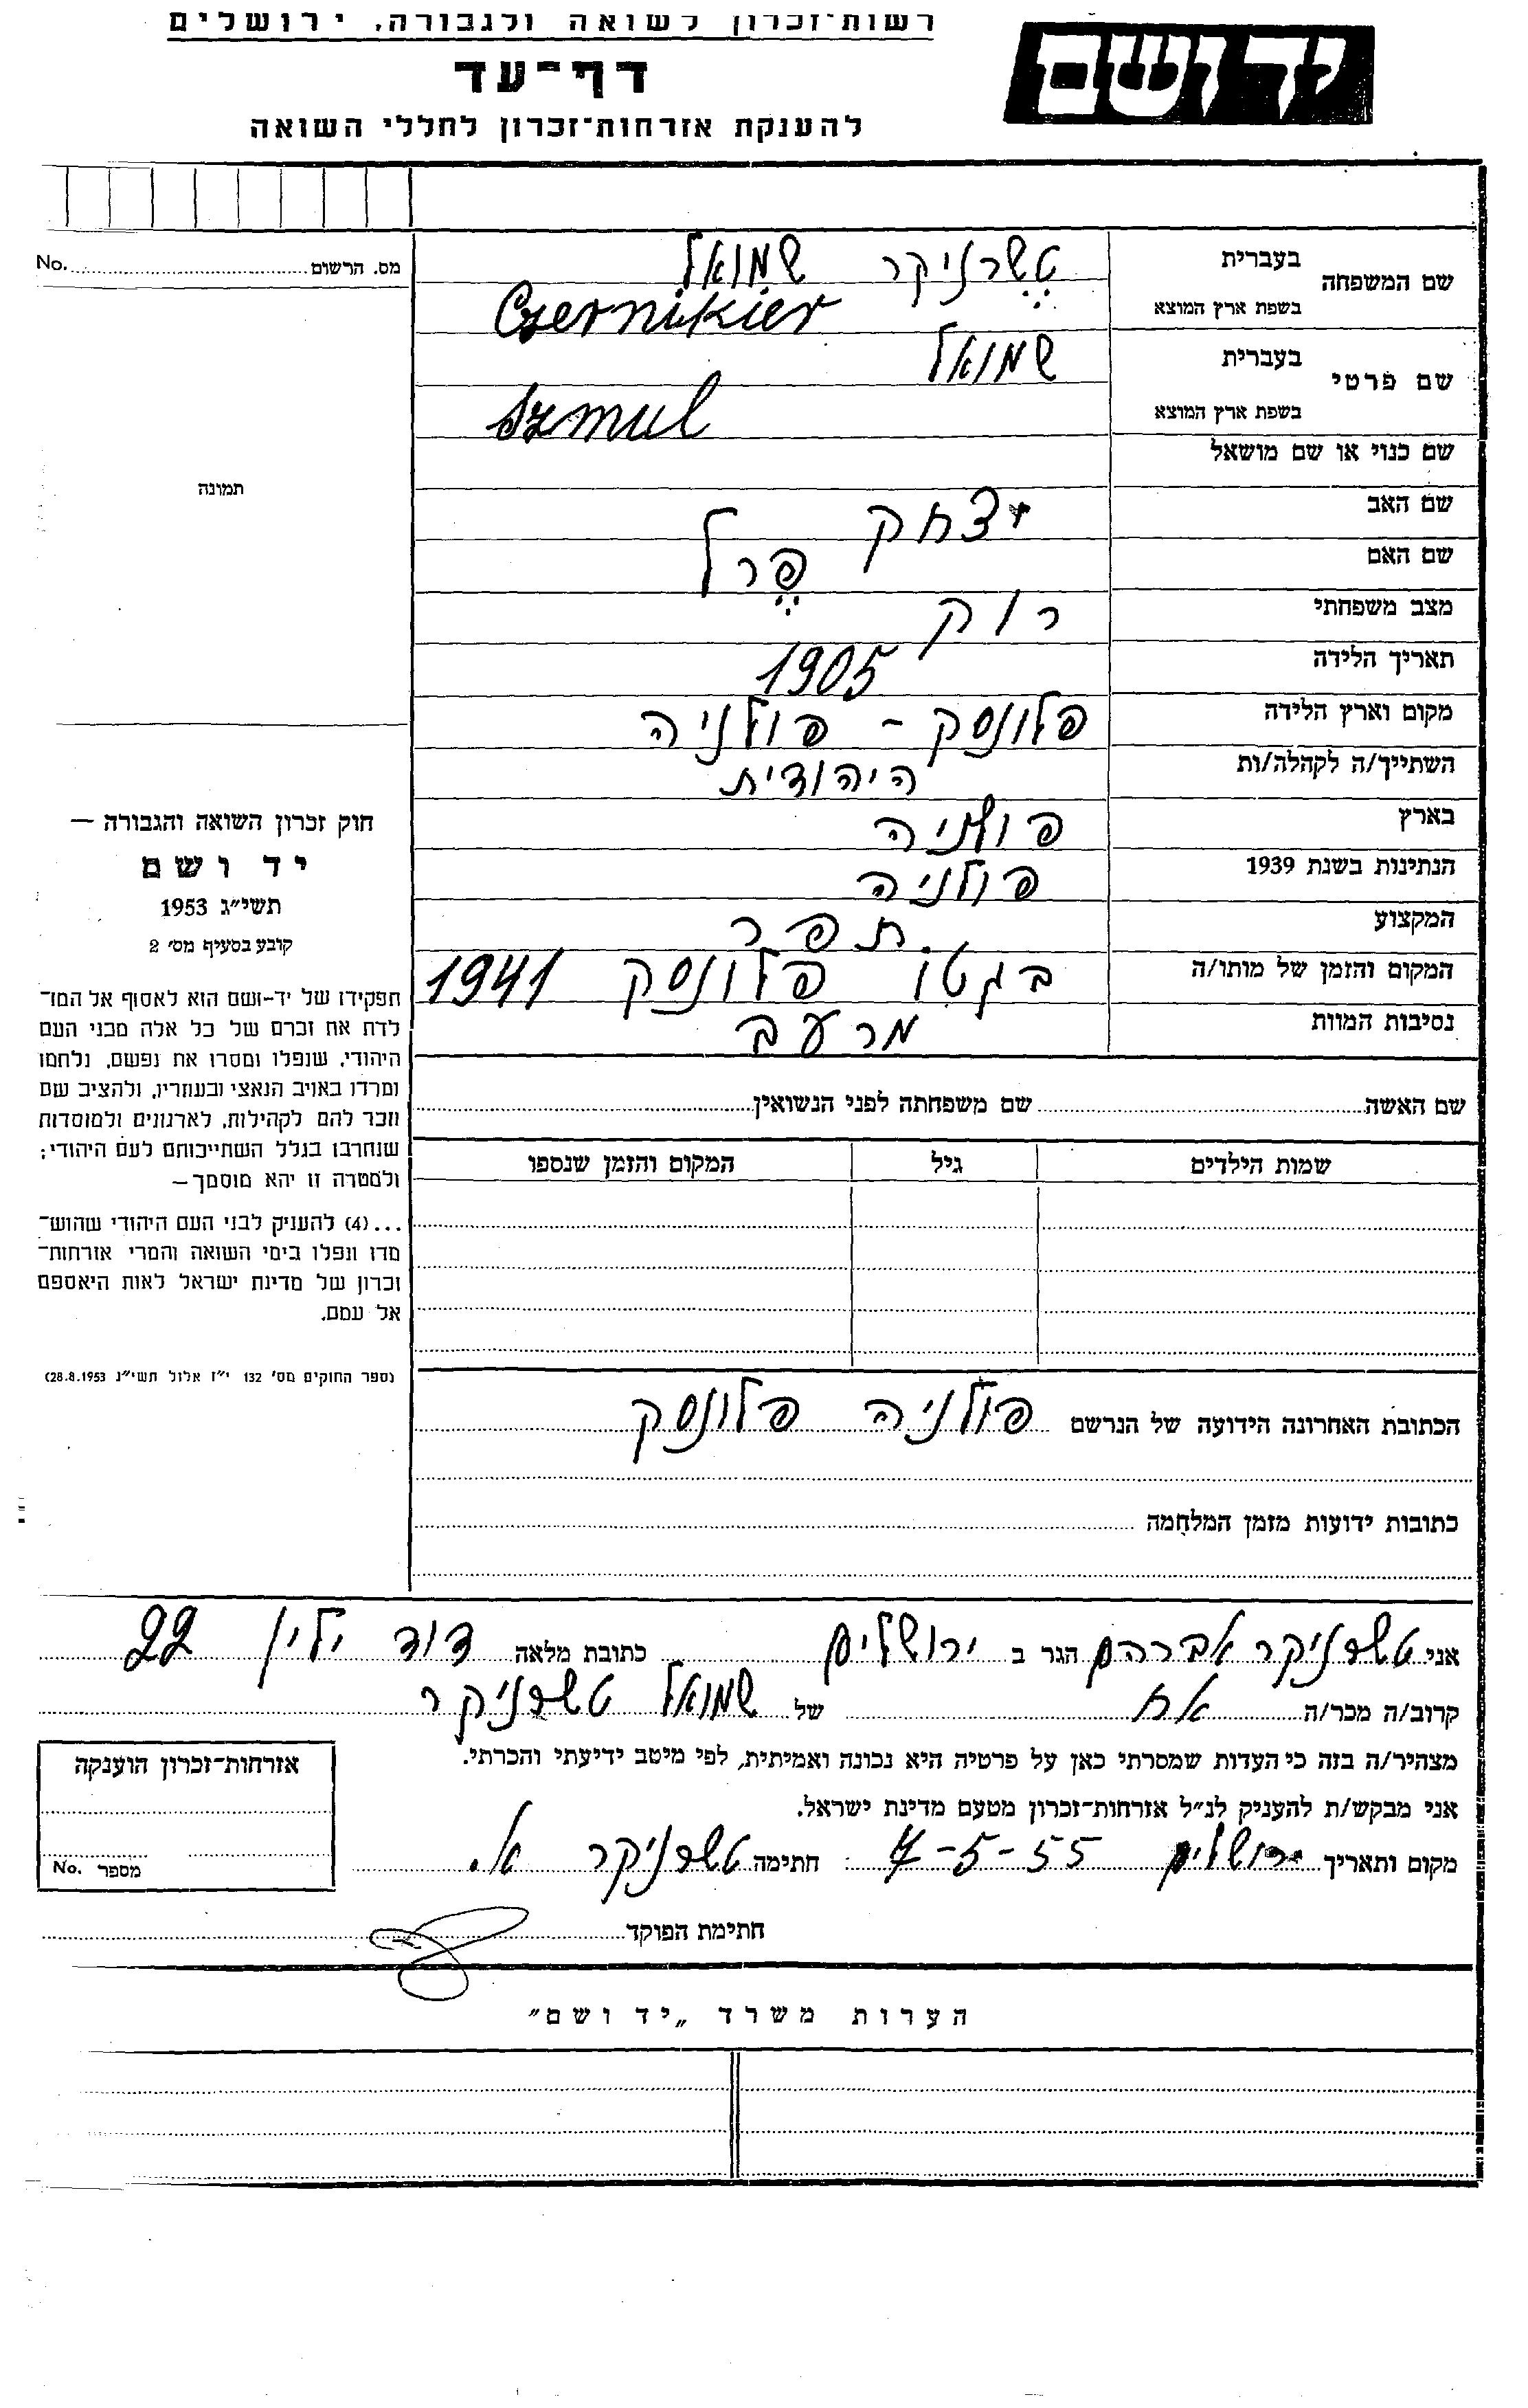 רשות־זכרון לשואה ולגבורה, ירושלים
יד ושם
דף־עד
להענקת אזרחות־זכרון לחללי השואה
מס. הרשום No.
שם המשפחה
בעברית טשרניקר שמואל
בשפת ארץ המוצא Czernikier
שם פרטי
בעברית שמואל
בשפת ארץ המוצא Szmul
שם כנוי או שם מושאל
שם האב יצחק
שם האם פרל
מצב משפחתי רוק
תאריך הלידה 1905
מקום וארץ הלידה פלונסק - פולניה
השתייך/ה לקהלה/ות היהודית
בארץ פולניה
הנתינות בשנת 1939 פולניה
המקצוע תפר
המקום והזמן של מותו/ה בגטו פלונסק 1941
נסיבות המוות מרעב
תמונה
חוק זכרון השואה והגבורה —
יד ושם
תשי״ג 1953
קובע בסעיף מס׳ 2
תפקידו של יד-ושם הוא לאסוף אל המו־
לדת את זכרם של כל אלה מבני העם
היהודי, שנפלו ומסרו את נפשם, נלחמו
ומרדו באויב הנאצי ובעוזריו, ולהציב שם
וזכר להם לקהילות, לארגונים ולמוסדות
שנחרבו בגלל השתייכותם לעם היהודי;
ולמטרה זו יהא מוסמך —
...(4) להעניק לבני העם היהודי שהוש־
מדו ונפלו בימי השואה והמרי אזרחות־
זכרון של מדינת ישראל לאות היאספם
אל עמם.
(ספר החוקים מס׳ 132 י״ז אלול תשי״ג 28.8.1953)
שם האשה שם משפחתה לפני הנשואין
שמות הילדים גיל המקום והזמן שנספו
הכתובת האחרונה הידועה של הנרשם פולניה פלונסק
כתובות ידועות מזמן המלחמה
אני טשרניקר אברהם הגר ב ירושלים כתובת מלאה דוד ילין 22
קרוב/ה מכר/ה אח של שמואל טשרניקר
מצהיר/ה בזה כי העדות שמסרתי כאן על פרטיה היא נכונה ואמיתית, לפי מיטב ידיעתי והכרתי.
אני מבקש/ת להעניק לנ״ל אזרחות־זכרון מטעם מדינת ישראל.
מקום ותאריך ירושלים 4-5-55 חתימה טשרניקר א.
אזרחות־זכרון הוענקה
מספר No.
חתימת הפוקד
הערות משרד „יד ושם״